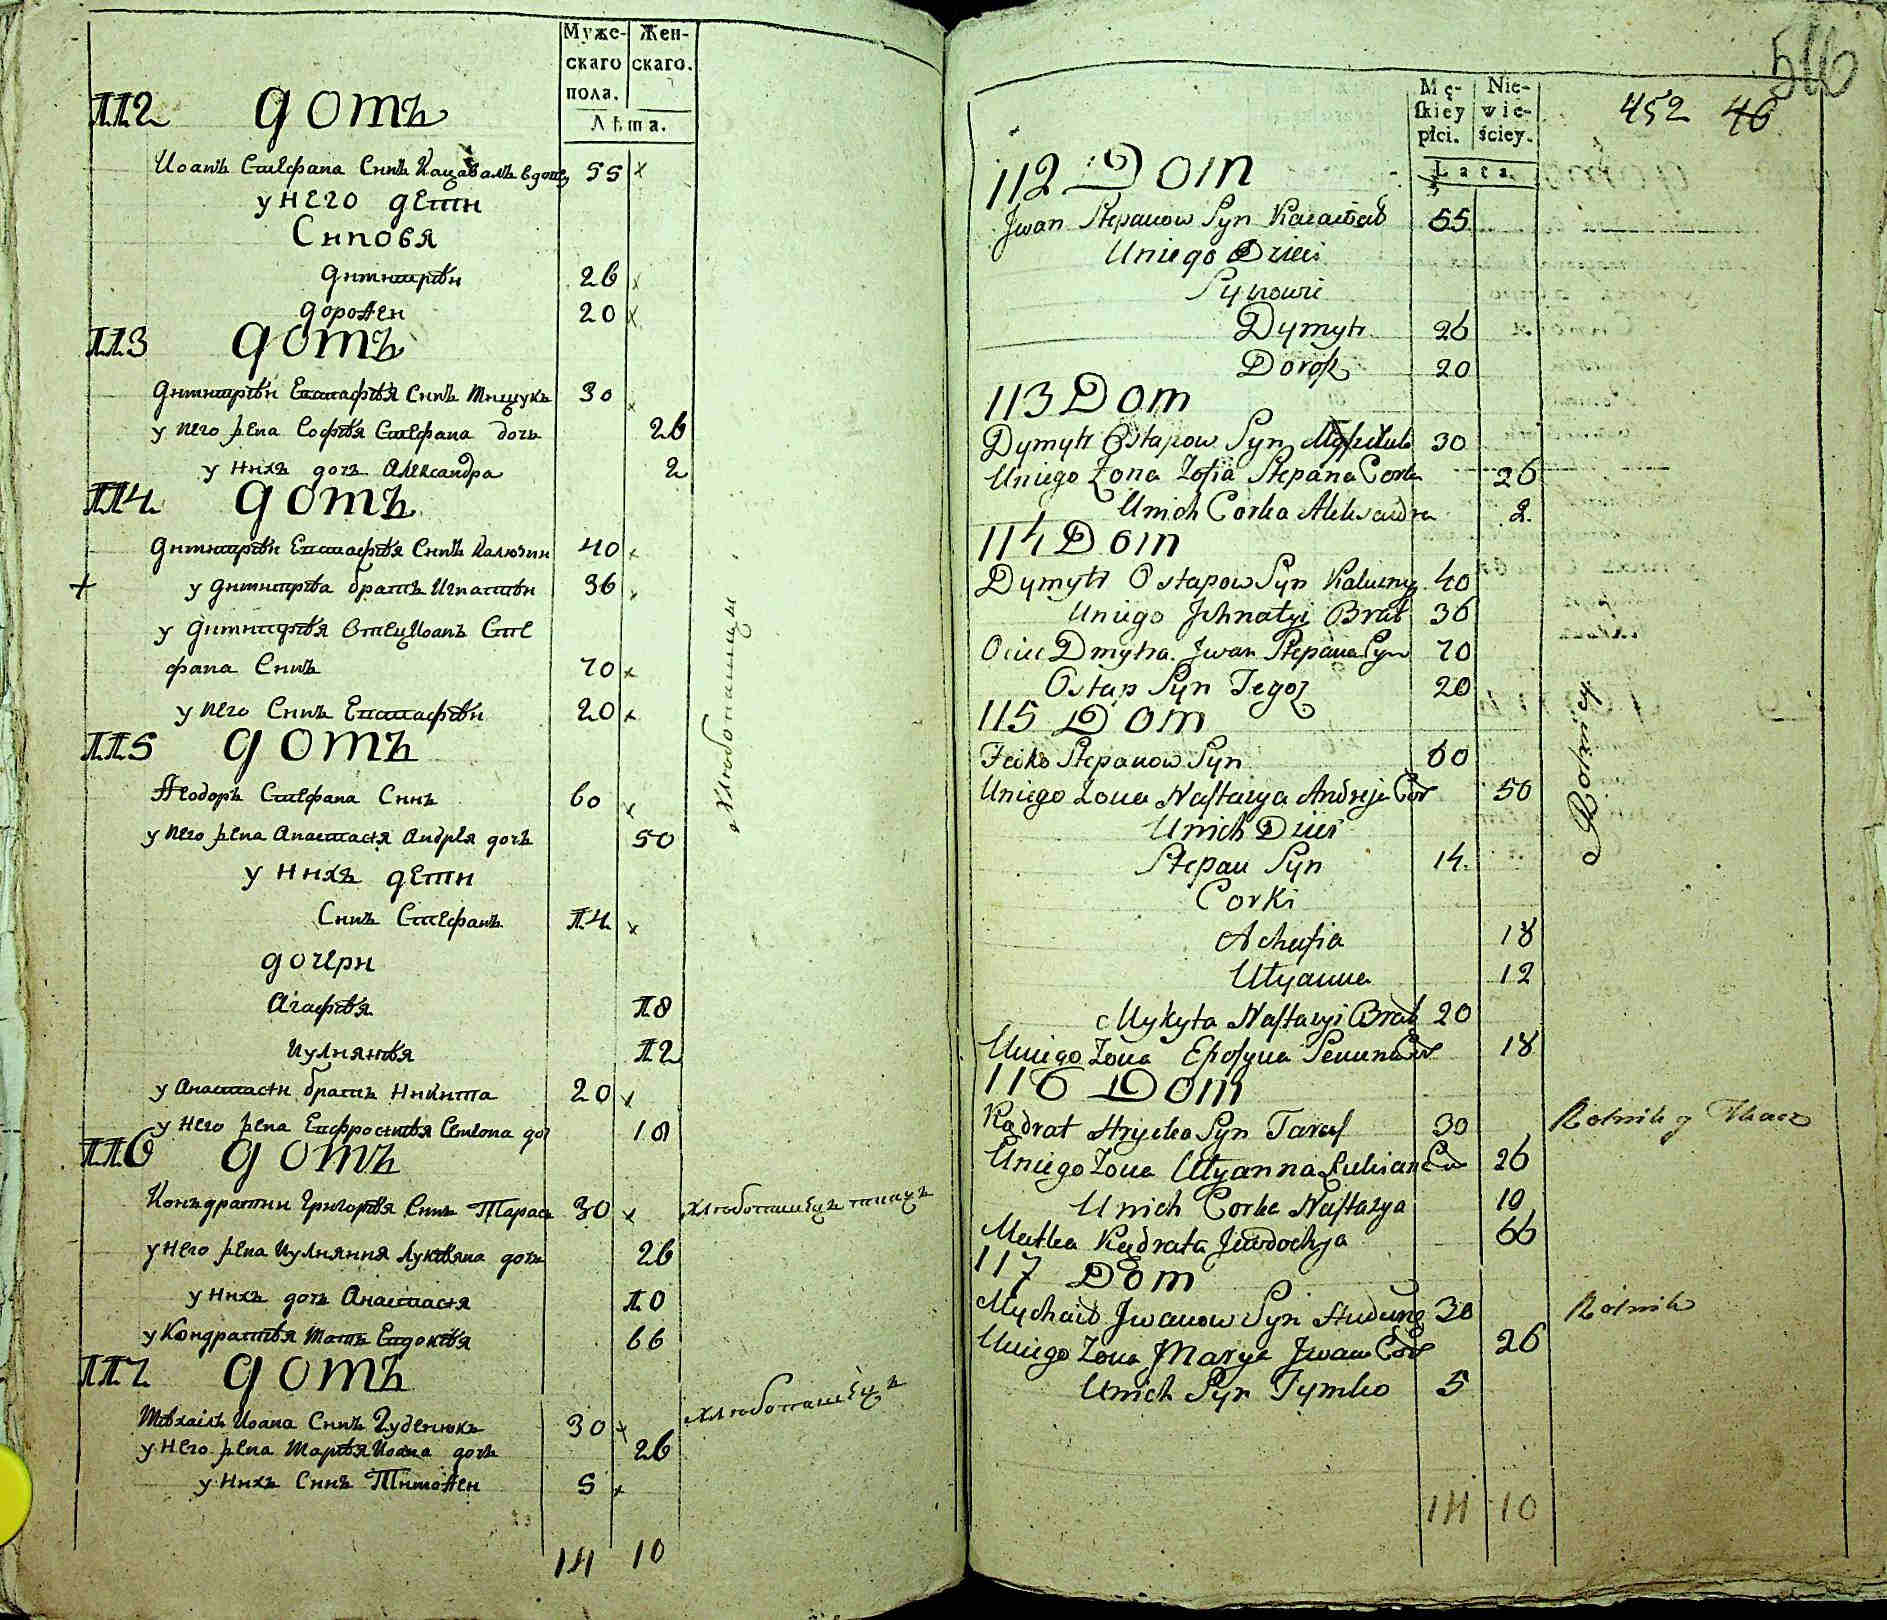 Муже-
скаго
пола.
Жен-
скаго.
Лѣта.
112 Домъ
Иоанъ Стефана Синъ Кацавалъ вдовец 55
у него дети
Синовя
Димитрѣи 26
Дороѳеи 20
113 Домъ
Димитрѣи Евстафѣя Синъ Тищукъ 30
у него жена Софѣя Стефана дочь 26
у нихъ дочъ Александра 2
114 Домъ
Димитрѣи Евстафѣя Синъ Калюзни 40
у Димитрѣа братъ Игнатѣи 36
у Димитрѣя Отец Иоанъ Сте
фана Синъ 70
у него Синъ Евстафѣи 20
115 Домъ
Ѳеодоръ Стефана Синъ 60
у него жена Анастасѣя Андрея дочъ 50
у нихъ дети
Синъ Стефанъ 14
дочери
Агафѣя 18
Иулиянѣя 12
у Анастасѣи братъ Никита 20
у него жена Евфросинѣя Семиона доч 18
116 Домъ
Конъдратии Григорѣя Синъ Тарас 30 хлѣбопашецъ ткачъ
у него жена Иулиянния Лукѣяна дочъ 26
у нихъ дочъ Анастасѣя 10
у Кондратѣя мать Евдокѣя 66
117 Домъ
Мѣхаілъ Иоана Синъ Гуденюкъ 30 хлѣбопашецъ
у него жена Марѣя Иоана дочъ 26
у нихъ Синъ Тимоѳеи 5
14 10
хлѣбопашцы
516
452 46
Mę-
skiey
płci.
Nie-
wie-
ściey.
Lata.
112 Dom
Jwan Stepanow Syn Kacawał 55
Uniego Dzieci
Synowie
Dymytr 26
Dorof 20
113 Dom
Dymytr Ostapow Syn 30
Uniego Zona Zofia Stepana Corka 26
Unich Corka Aleksandra 2
114 Dom
Dymytr Ostapow Syn Kaluzny 40
Uniego Jhnatyi Brat 36
Ociec Dmytra Jwan Stepana Syn 70
Ostap Syn Jegoż 20
115 Dom
Fedko Stepanow Syn 60
Uniego Zona Nastazya Andreja Cor 50
Unich Dzieci
Stepan Syn 14
Corki
Ahafia 18
Ulyanna 12
Mykyta Nastazyi Brat 20
Uniego Zona Efrosyna Semena Cor 18
116 Dom
Kądrat Hrycka Syn Taras 30 Rolnik y Tkacz
Uniego Zona Ulyanna Lukiana Cor 26
Unich Corka Nastazya 10
Matka Kądrata Jewdochya 66
117 Dom
Mychaił Jwanow Syn Hudeniuk 30 Rolnik
Uniego Zona Marya Jwana Cor 26
Unich Syn Tymko 5
14 10
Rolnicy